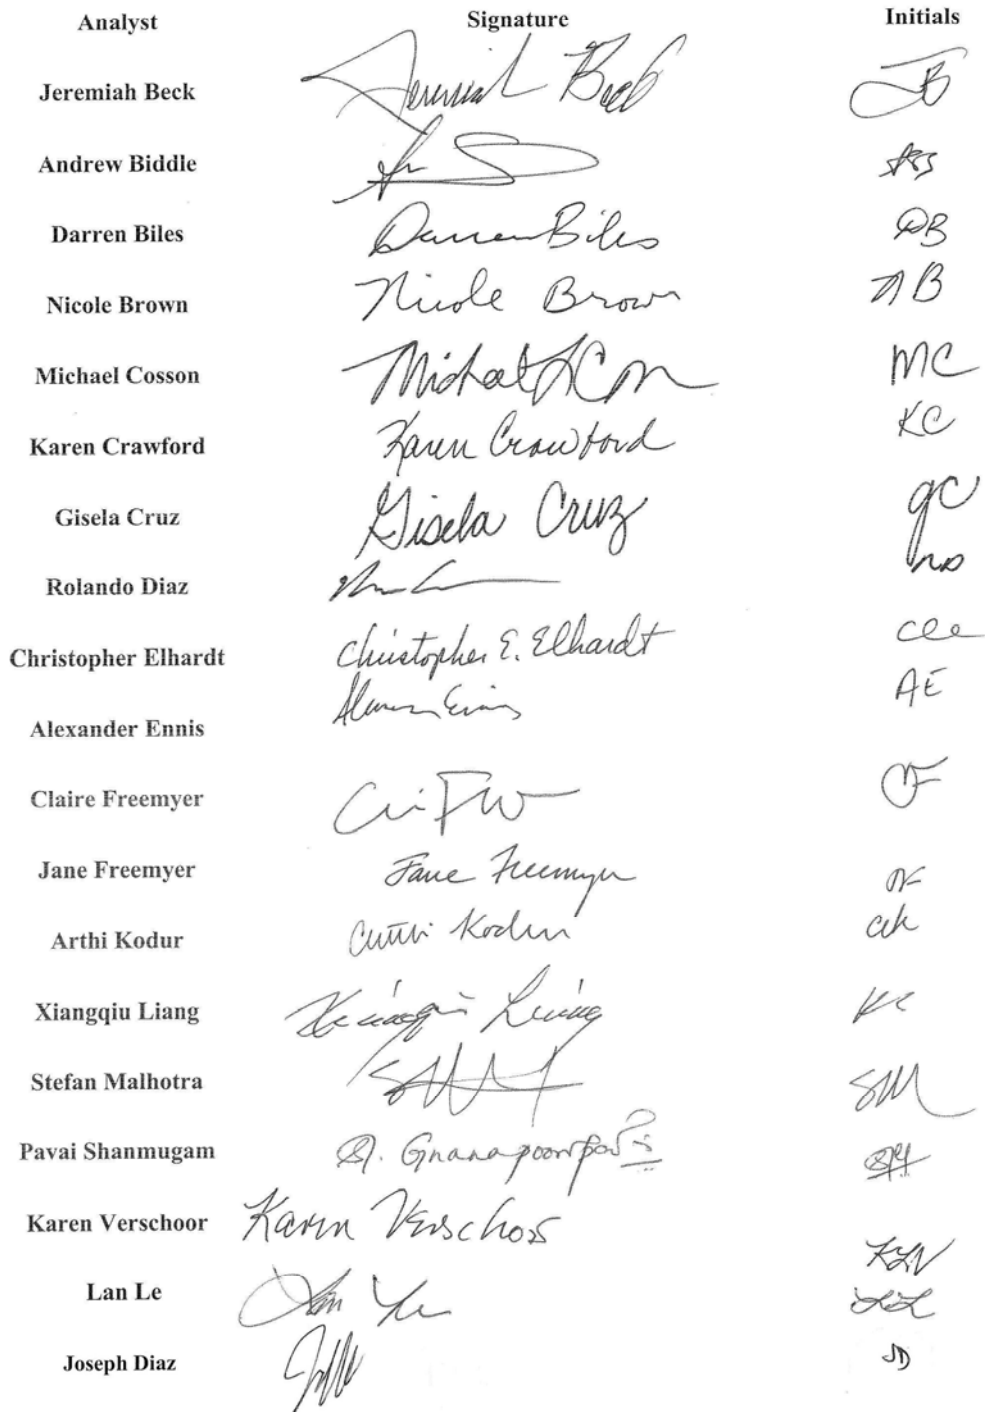 Analyst Signature Initials
Jeremiah Beck Jeremiah Beck JB
Andrew Biddle
Darren Biles Darren Biles DB
Nicole Brown Nicole Brown NB
Michael Cosson Michael MC
Karen Crawford Karen Crawford KC
Gisela Cruz Gisela Cruz gC
Rolando Diaz
Christopher Elhardt Christopher E. Elhardt cee
Alexander Ennis AE
Claire Freemyer CF
Jane Freemyer Jane Freemyer JF
Arthi Kodur Arthi Kodur ak
Xiangqiu Liang
Stefan Malhotra SM
Pavai Shanmugam
Karen Verschoor Karen Verschoor KLV
Lan Le LL
Joseph Diaz JD